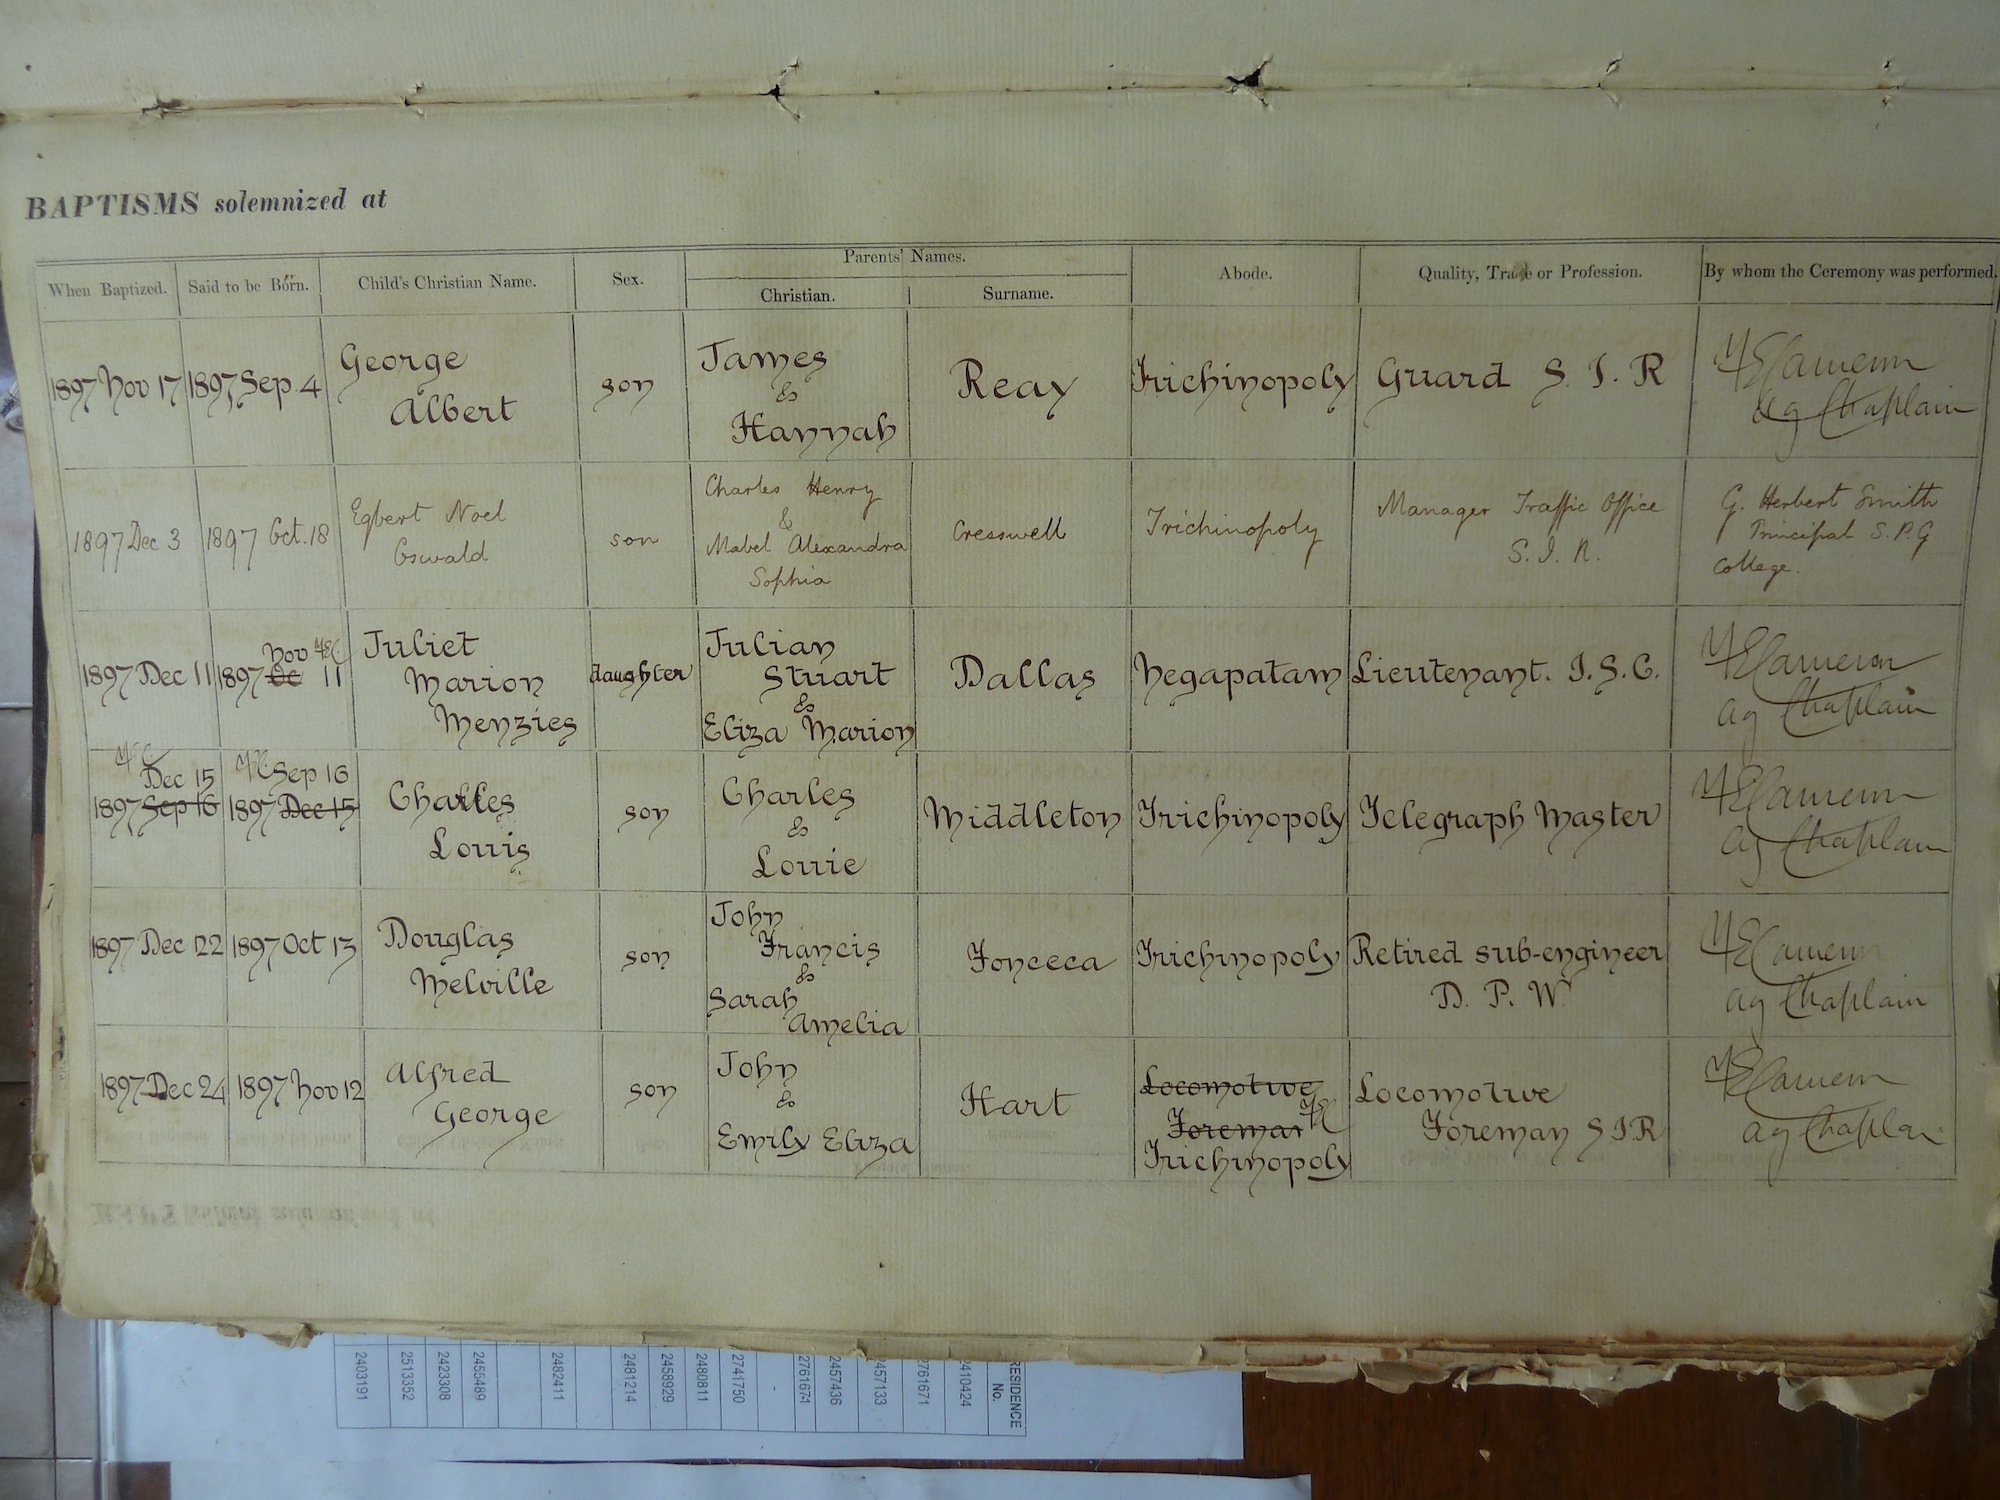 BAPTISMS solemnized at
When Baptized. Said to be Born. Child's Christian Name. Sex. Parents' Names. Abode. Quality, Trade or Profession. By whom the Ceremony was performed.
Christian. Surname.
1897 Nov 17 1897 Sep 4 George son James Reay Trichinopoly Guard S. I. R Cameron
Albert & Ag Chaplain
Hannah
1897 Dec 3 1897 Oct. 18 Egbert Noel son Charles Henry Cresswell Trichinopoly Manager Traffic Office G. Herbert Smith
Oswald & S. I. R. Principal S. P. G
Mabel Alexandra College.
Sophia
Nov
1897 Dec 11 1897 Oc 11 Juliet daughter Julian Dallas Negapatam Lieutenant. I. S. C. Cameron
Marion Stuart ag Chaplain
Menzies &
Eliza Marion
Dec 15 Sep 16
1897 Sep 16 1897 Dec 15 Charles son Charles Middleton Trichinopoly Telegraph Master Cameron
Louis & ag Chaplain
Louie
1897 Dec 22 1897 Oct 13 Douglas son John Fonceca Trichinopoly Retired sub-engineer Cameron
Melville Francis D. P. W. ag Chaplain
&
Sarah
Amelia
1897 Dec 24 1897 Nov 12 Alfred son John Hart Locomotive Locomotive Cameron
George & Foreman Foreman S. I. R ag Chaplain
Emily Eliza Trichinopoly
RESIDENCE
No.
2410424
2761671
2457133
2457436
2761671
-
2741750
2480811
2458929
2481214
2482411
2455489
2423308
2513352
2403191